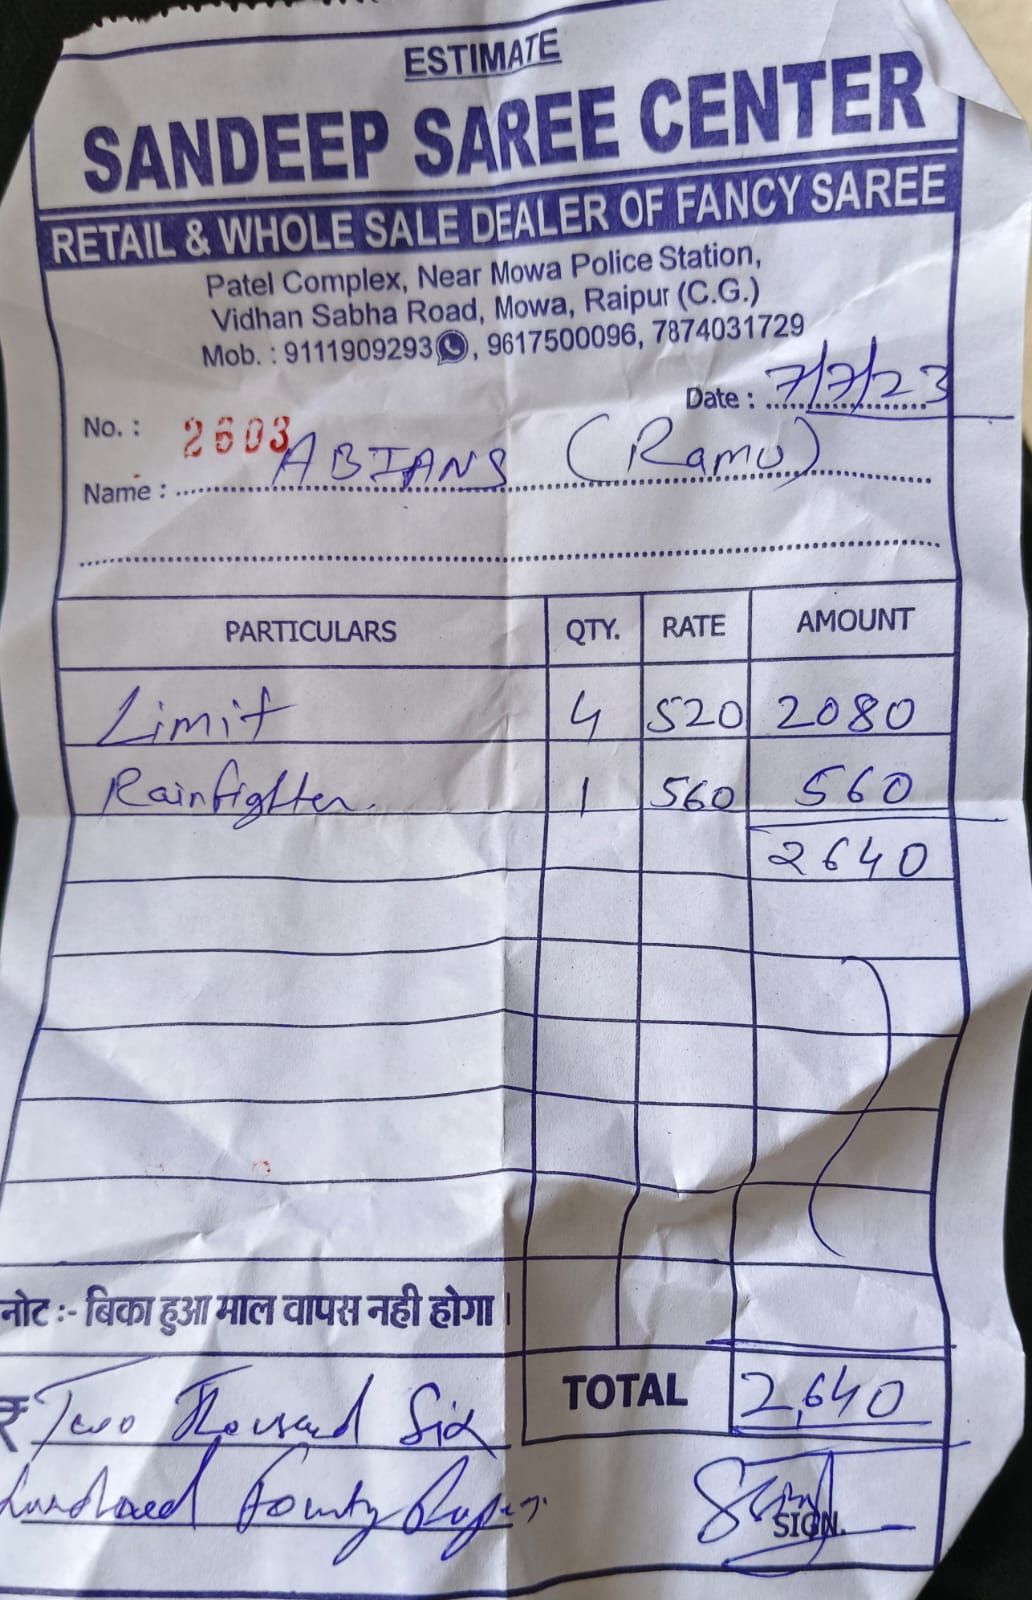 ESTIMATE
SANDEEP SAREE CENTER
RETAIL & WHOLE SALE DEALER OF FANCY SAREE
Patel Complex, Near Mowa Police Station,
Vidhan Sabha Road, Mowa, Raipur (C.G.)
Mob. : 9111909293, 9617500096, 7874031729
Date : 7/7/23
No. : 2603
Name : ABIANS (Ramu)
PARTICULARS QTY. RATE AMOUNT
Limit 4 520 2080
Rainfighter. 1 560 560
2640
नोट :- बिका हुआ माल वापस नही होगा।
TOTAL 2,640
₹ Two Thousand Six
hundred Fourty
SIGN.